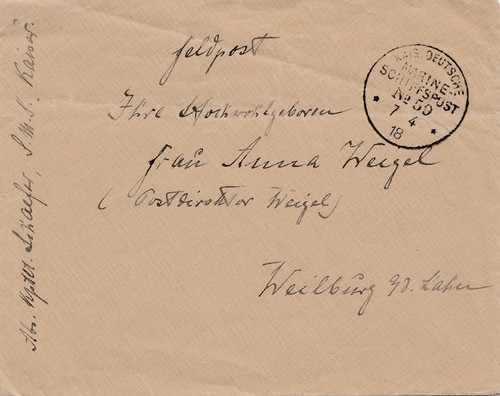 Feldpost
KAIS. DEUTSCHE
MARINE-
SCHIFFSPOST
No 50
7 4
18
Ihre Hochwohlgeboren
Frau Anna Weigel
(Postdirektor Weigel)
Weilburg a/d. Lahn
Abs. Schaefer, S.M.S. Kaiser.